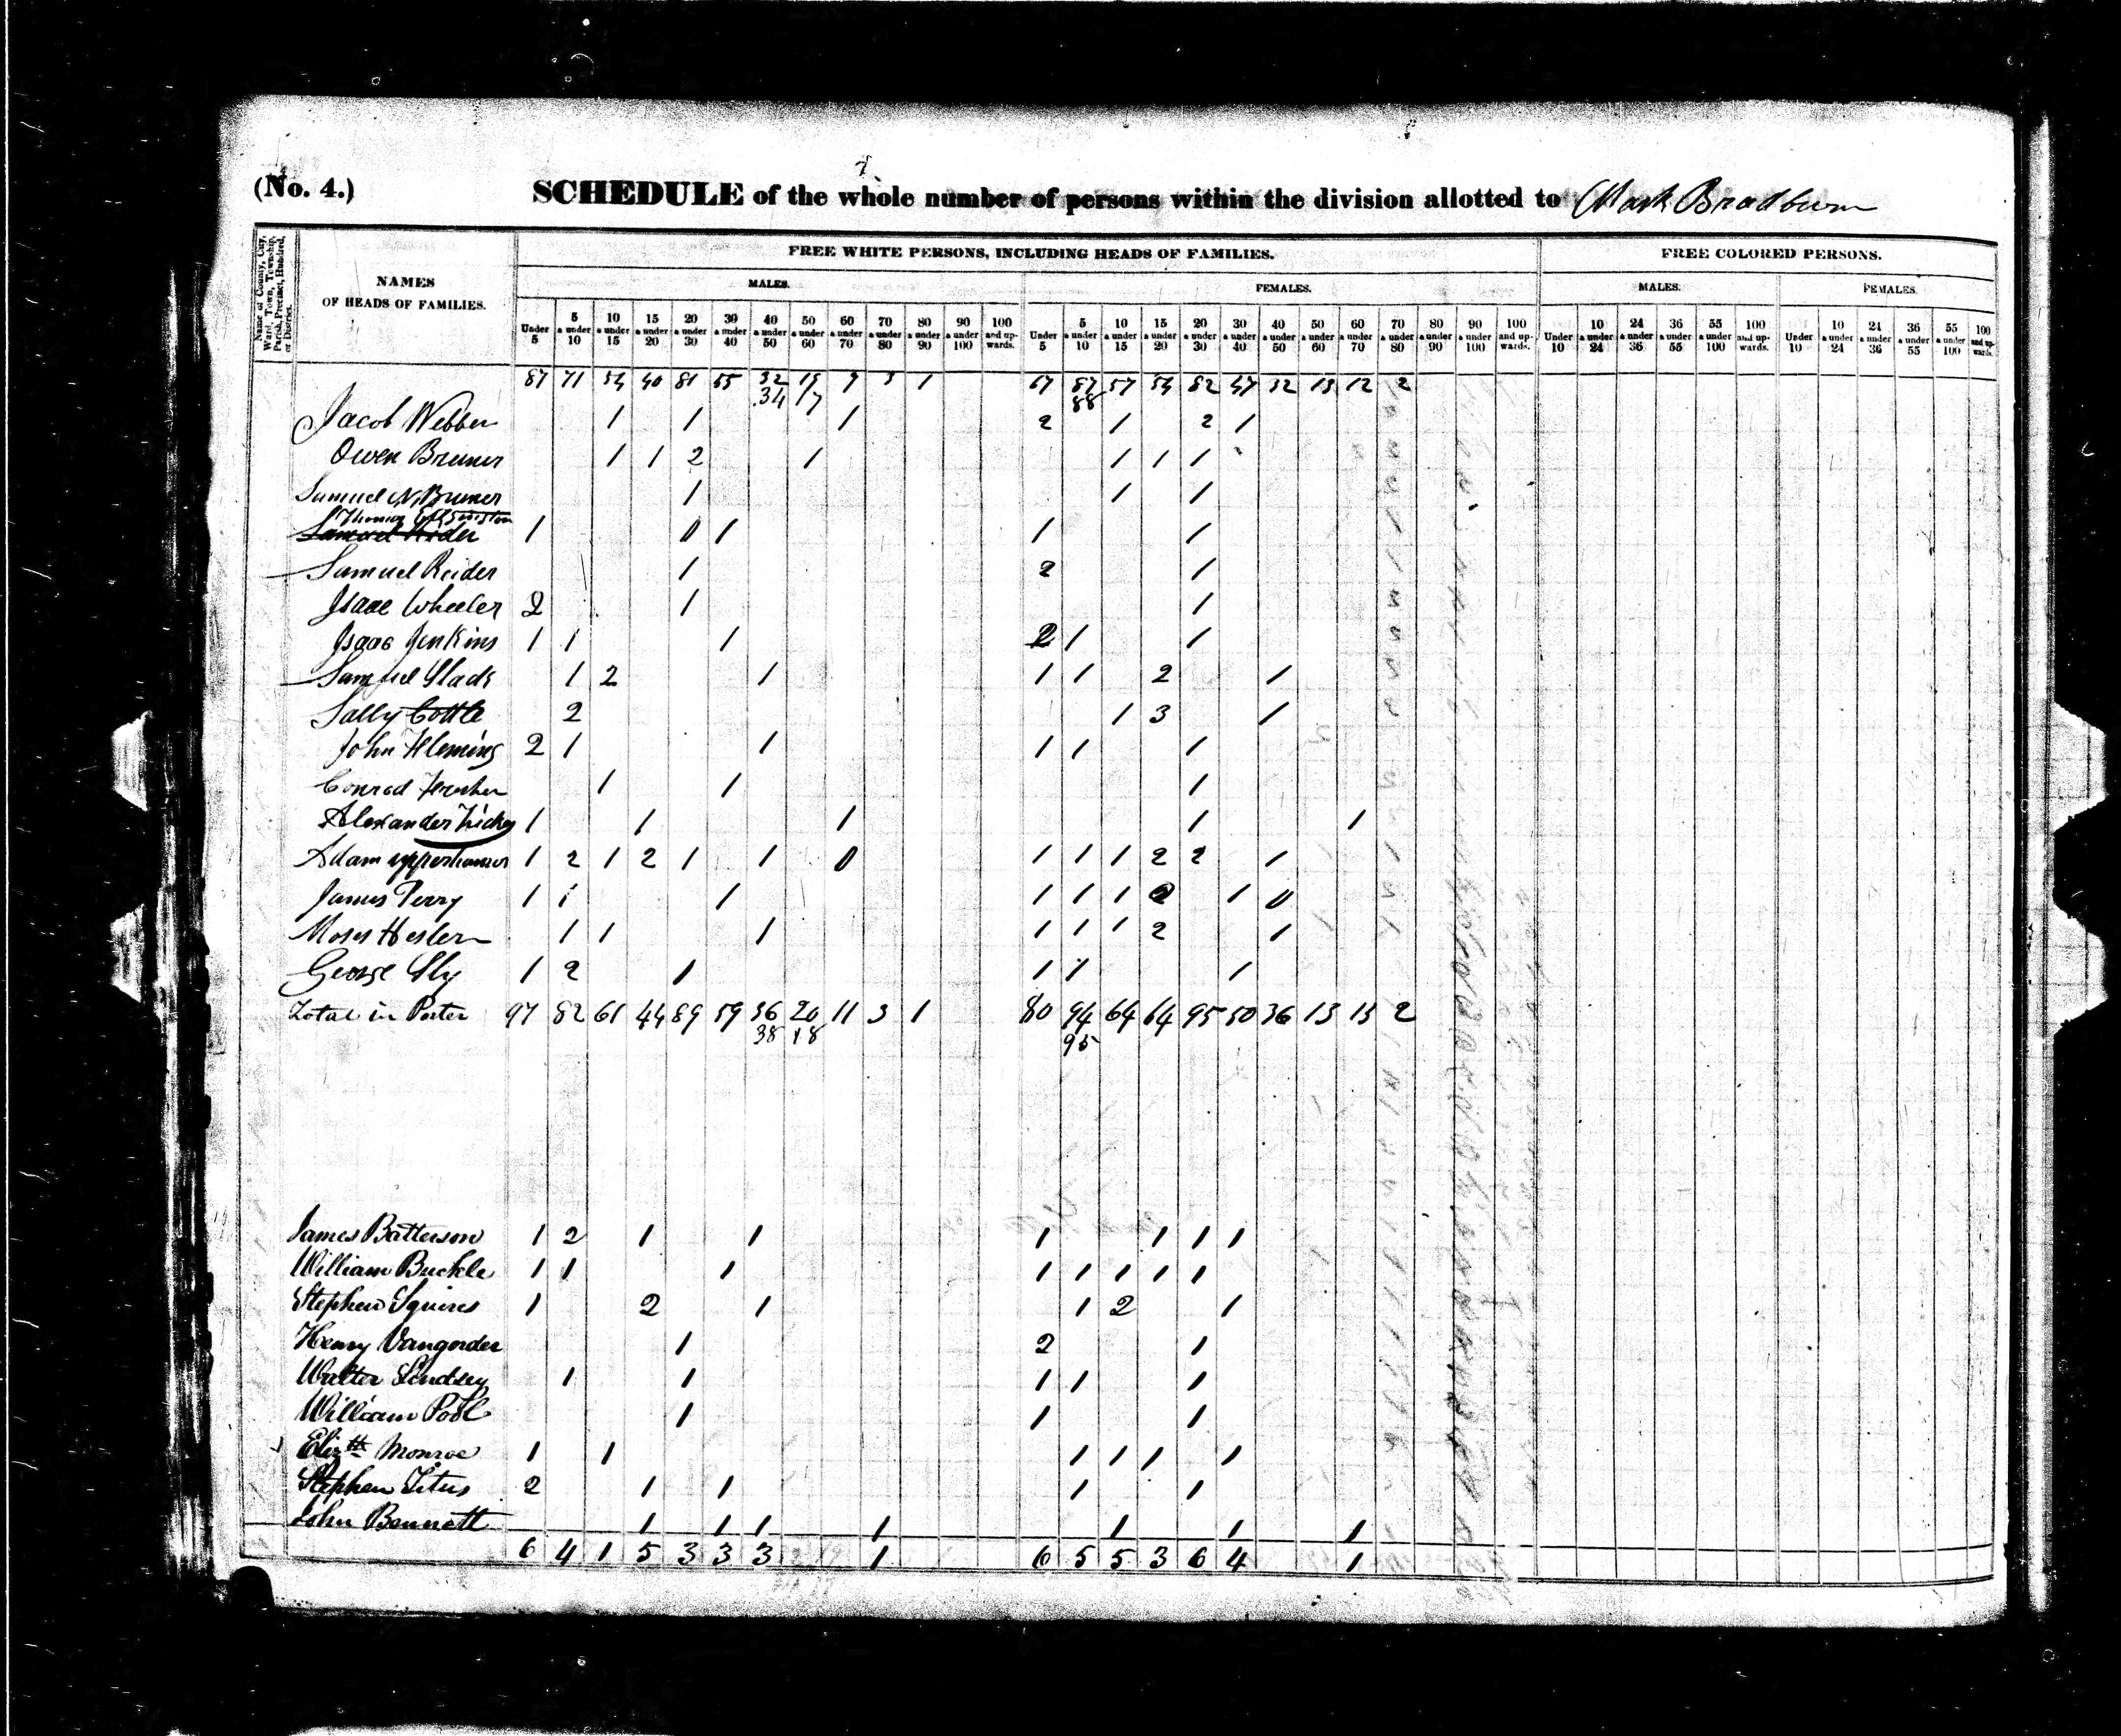 (No. 4.) SCHEDULE of the whole number of persons within the division allotted to Mark Bradburn
Name of County, City, Ward, Town, Township, Parish, Precinct, Hundred, or District.
NAMES OF HEADS OF FAMILIES.
FREE WHITE PERSONS, INCLUDING HEADS OF FAMILIES.
FREE COLORED PERSONS.
MALES. FEMALES. MALES. FEMALES.
Under 5 5 & under 10 10 & under 15 15 & under 20 20 & under 30 30 & under 40 40 & under 50 50 & under 60 60 & under 70 70 & under 80 80 & under 90 90 & under 100 100 and upwards. Under 5 5 & under 10 10 & under 15 15 & under 20 20 & under 30 30 & under 40 40 & under 50 50 & under 60 60 & under 70 70 & under 80 80 & under 90 90 & under 100 100 and upwards. Under 10 10 & under 24 24 & under 36 36 & under 55 55 & under 100 100 and upwards. Under 10 10 & under 24 24 & under 36 36 & under 55 55 & under 100 100 and upwards.
87 71 54 40 81 55 32 19 9 3 1 67 87 57 54 82 47 32 13 12 2
34 17 88
Jacob Webber 1 1 1 2 1 2 1
Owen Bruner 1 1 2 1 1 1 1
Samuel N. Bruner 1 1 1
Thomas
Samuel 1 0 1 1 1
Samuel Reider 1 2 1
Isaac Wheeler 2 1 1
Isaac Jenkins 1 1 1 2 1 1
Samuel Slack 1 2 1 1 1 2 1
Sally Cottle 2 1 3 1
John Fleming 2 1 1 1 1 1
Conrad 1 1 1
Alexander 1 1 1 1 1
Adam 1 2 1 2 1 1 0 1 1 1 2 2 1
James Perry 1 1 1 1 1 1 2 1 0
Moses Heslern 1 1 1 1 1 1 2 1
George Sly 1 2 1 1 1 1
Total in Porter 97 82 61 44 89 59 36 20 11 3 1 80 94 64 64 95 50 36 13 13 2
38 18 95
James Batterson 1 2 1 1 1 1 1 1
William Buckle 1 1 1 1 1 1 1 1
Stephen Squires 1 2 1 1 2 1
Henry Vangorder 1 2 1
Walter Lindsey 1 1 1 1 1
William Pool 1 1 1
Elizth Monroe 1 1 1 1 1 1
Stephen Titus 2 1 1 1 1
John Bennett 1 1 1 1 1 1 1
6 4 1 5 3 3 3 1 6 5 5 3 6 4 1